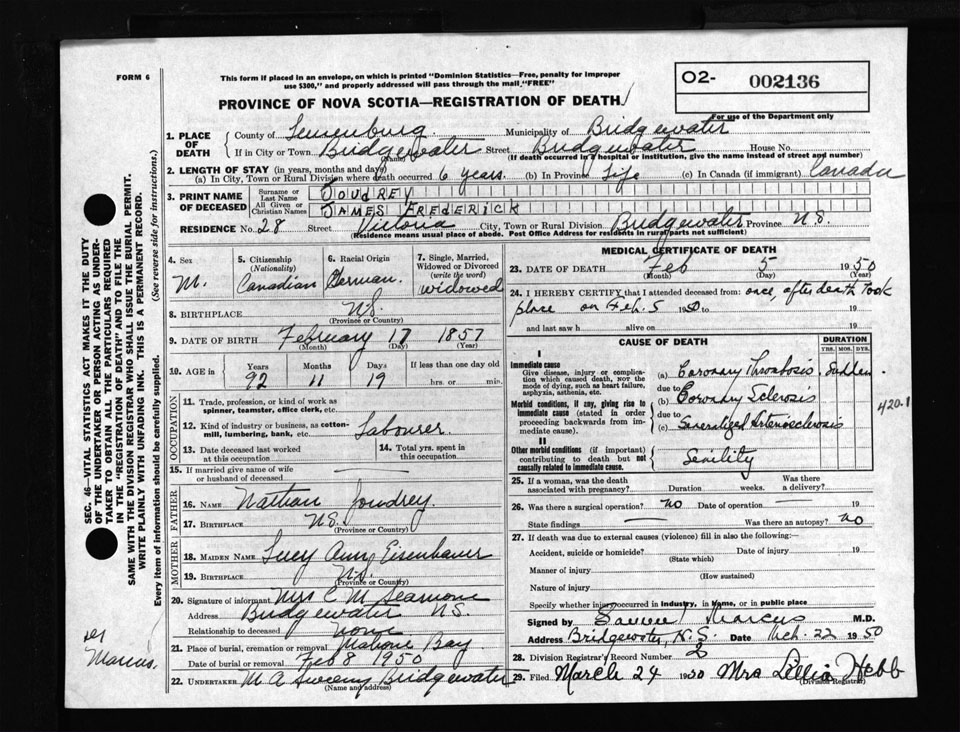 FORM 6
This form if placed in an envelope, on which is printed "Dominion Statistics—Free, penalty for improper
use $300," and properly addressed will pass through the mail "FREE"
O2- 002136
PROVINCE OF NOVA SCOTIA—REGISTRATION OF DEATH
For use of the Department only
1. PLACE OF DEATH
County of Lunenburg Municipality of Bridgewater
If in City or Town Bridgewater Street Bridgewater House No.
(Name) (If death occurred in a hospital or institution, give the name instead of street and number)
2. LENGTH OF STAY (in years, months and days)
(a) In City, Town or Rural Division where death occurred 6 years. (b) In Province Life (c) In Canada (if immigrant) Canada
3. PRINT NAME OF DECEASED
Surname or Last Name JOUDREY
All Given or Christian Names JAMES FREDERICK
RESIDENCE No. 28 Street Victoria City, Town or Rural Division Bridgewater Province N.S.
(Residence means usual place of abode. Post Office Address for residents in rural parts not sufficient)
4. Sex M.
5. Citizenship (Nationality) Canadian
6. Racial Origin German
7. Single, Married, Widowed or Divorced (write the word) widowed
8. BIRTHPLACE N.S.
(Province or Country)
9. DATE OF BIRTH February 17 1857
(Month) (Day) (Year)
10. AGE in Years Months Days If less than one day old
92 11 19 hrs. or min.
OCCUPATION
11. Trade, profession, or kind of work as spinner, teamster, office clerk, etc.
12. Kind of industry or business, as cotton-mill, lumbering, bank, etc. Labourer.
13. Date deceased last worked at this occupation
14. Total yrs. spent in this occupation
15. If married give name of wife or husband of deceased —
FATHER
16. NAME Nathan Joudrey
17. BIRTHPLACE N.S.
(Province or Country)
MOTHER
18. MAIDEN NAME Lucy Ann Eisenhauer
19. BIRTHPLACE N.S.
(Province or Country)
20. Signature of informant Mrs C M Seamone
Address Bridgewater N.S.
Relationship to deceased none
21. Place of burial, cremation or removal Mahone Bay
Date of burial or removal Feb 8 1950
22. UNDERTAKER M A Sweeny Bridgewater
(Name and address)
MEDICAL CERTIFICATE OF DEATH
23. DATE OF DEATH Feb 5 1950
(Month) (Day) (Year)
24. I HEREBY CERTIFY that I attended deceased from: once, after death took
place on Feb. 5 1950 to 19
and last saw h alive on 19
CAUSE OF DEATH
DURATION
YRS. MOS. DYS.
I
Immediate cause
Give disease, injury, or complication which caused death, not the mode of dying, such as heart failure, asphyxia, asthenia, etc.
(a) Coronary Thrombosis. Sudden.
due to
Morbid conditions, if any, giving rise to immediate cause (stated in order proceeding backwards from immediate cause).
(b) Coronary Sclerosis
due to
(c) Generalized Arteriosclerosis
420.1
II
Other morbid conditions (if important) contributing to death but not causally related to immediate cause.
Senility
25. If a woman, was the death associated with pregnancy? Duration weeks. Was there a delivery?
26. Was there a surgical operation? no Date of operation — 19
State findings — Was there an autopsy? no
27. If death was due to external causes (violence) fill in also the following:—
Accident, suicide or homicide? Date of injury 19
(State which)
Manner of injury
(How sustained)
Nature of injury
Specify whether injury occurred in industry, in home, or in public place
Signed by Marcus M.D.
Address Bridgewater, N.S. Date Mch. 22 1950
28. Division Registrar's Record Number 2
29. Filed March 24 1950 Mrs Lillia Hebb
(Division Registrar)
SEC. 46—VITAL STATISTICS ACT MAKES IT THE DUTY
OF THE UNDERTAKER OR PERSON ACTING AS UNDER-
TAKER TO OBTAIN ALL THE PARTICULARS REQUIRED
IN THE "REGISTRATION OF DEATH" AND TO FILE THE
SAME WITH THE DIVISION REGISTRAR WHO SHALL ISSUE THE BURIAL PERMIT.
WRITE PLAINLY WITH UNFADING INK. THIS IS A PERMANENT RECORD.
Every item of information should be carefully supplied. (See reverse side for instructions.)
Marcus.